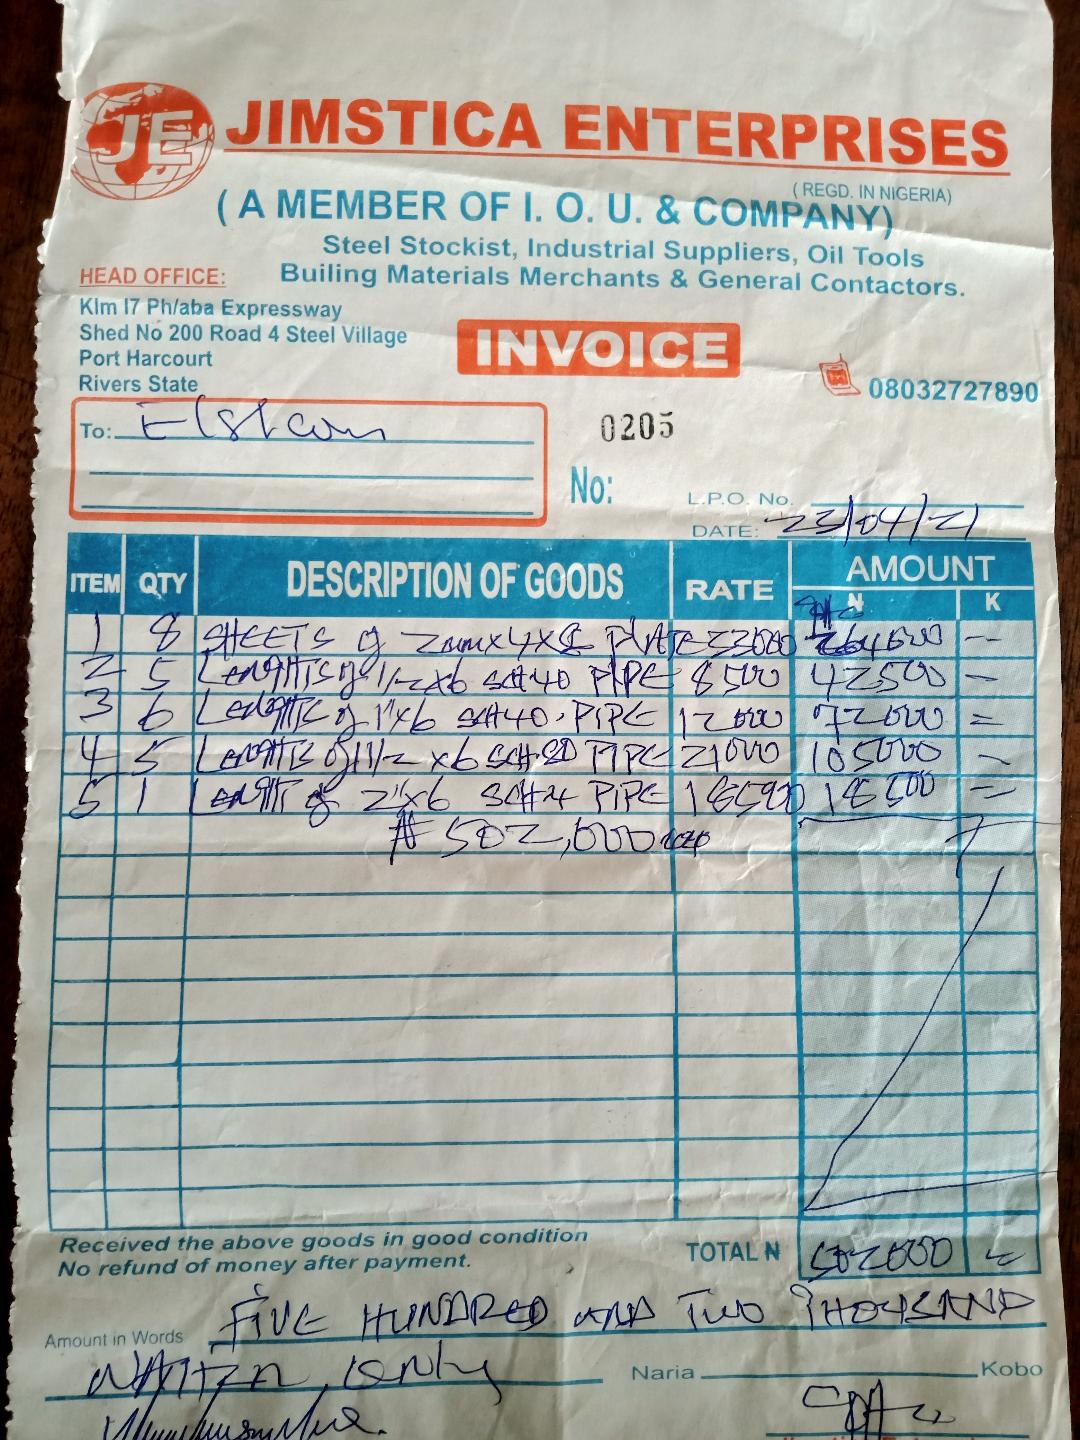 JE JIMSTICA ENTERPRISES
(REGD. IN NIGERIA)
(A MEMBER OF I. O. U. & COMPANY)
Steel Stockist, Industrial Suppliers, Oil Tools
Builing Materials Merchants & General Contactors.
HEAD OFFICE:
Klm I7 Ph/aba Expressway
Shed No 200 Road 4 Steel Village
Port Harcourt
Rivers State
INVOICE
08032727890
To:
0205
No:
L.P.O. No.
DATE: 23/04/21
ITEM QTY DESCRIPTION OF GOODS RATE AMOUNT
N K
1 8 SHEETS of 2mmx4x8 PLATE 33000 264000 --
2 5 LENGHTS of 1/2x6 SCH40 PIPE 8500 42500 -
3 6 LENGHTS of 1"x6 SCH40. PIPE 12000 72000 =
4 5 LENGHTS of 1 1/2 x6 SCH.80 PIPE 21000 105000 -
5 1 LENGHT of 2"x6 PIPE 18500 18500 =
₦502,000
Received the above goods in good condition
No refund of money after payment.
TOTAL N 502000 =
Amount in Words FIVE HUNDRED AND TWO THOUSAND
NAIRA ONLY Naria Kobo